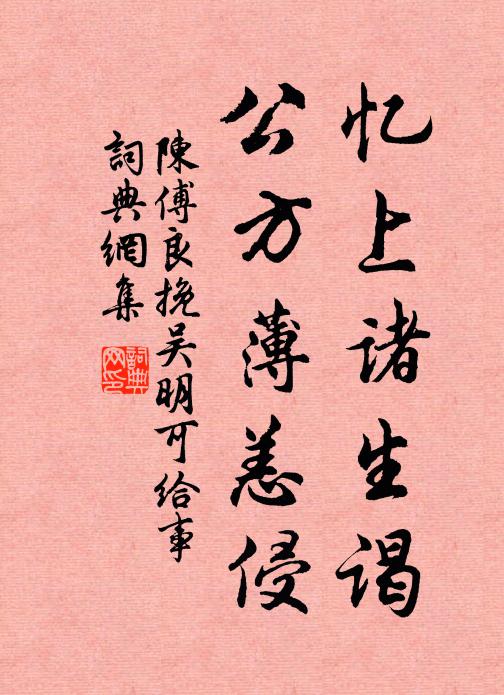 忆上诸生谒
公方薄恙侵
陳傅良挽吴明可给事
詞典網集
詞典網印